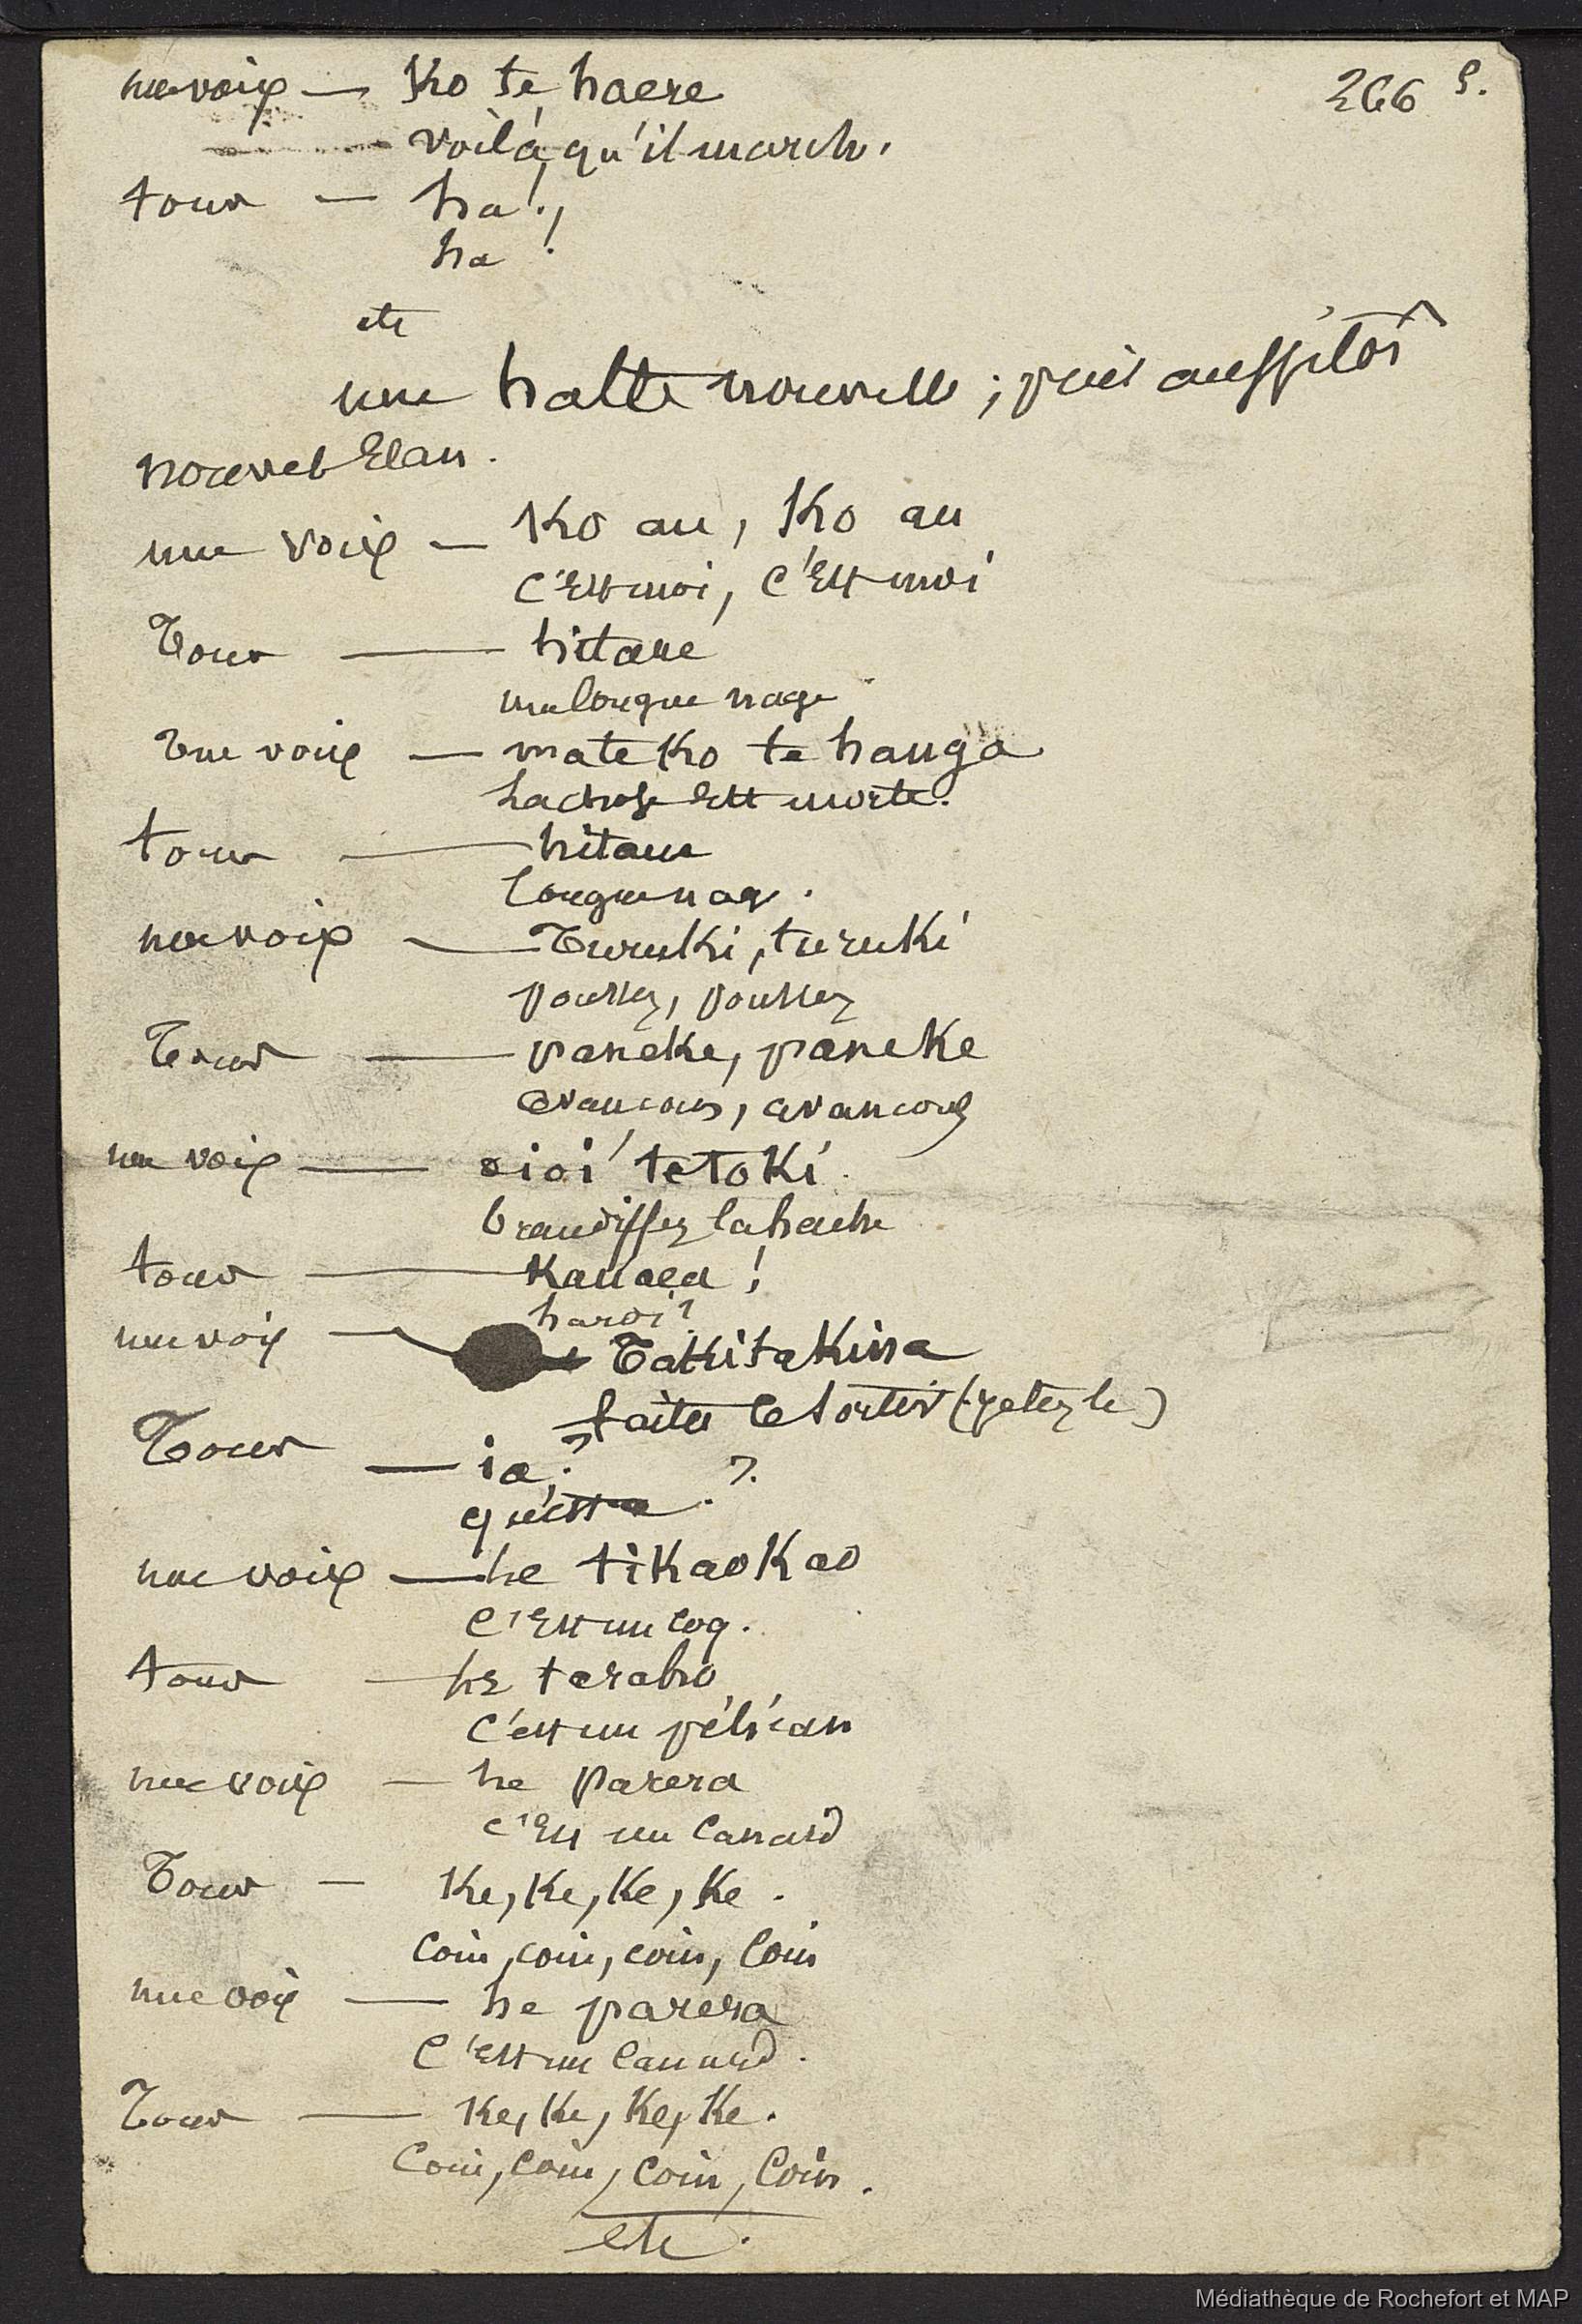 266 S.
une voix — Ko te haere
voilà, qu'il march.
tous — ha!,
ha!
etc
une halte nouvelle ; puis aussitôt
nouvel Elan.
une voix — Ko au, Ko au
C'Est moi, C'Est moi
Tous — hitaue
une longue nage
Une voix — mate Ko te hanga
La chose Est morte.
tous — hitaue
longue nage.
une voix — Turuki, turuki
poussez, poussez
Tous — paneke, paneke
avancons, avancons
une voix — oioi te toki.
brandissez la hache
tous — Kauaea !
hardi !
une voix — Takitakina
faites le sortir (jetez le)
Tous — ia ?
qu'est-ce . ?.
une voix — he tikaokao
C'Est un coq.
tous — he taraho
C'est un pélican
une voix — he parera
c'Est un canard
Tous — Ke, Ke, Ke, Ke.
Coin, coin, coin, Coin
une voix — he parera
C'Est un canard.
Tous — Ke, Ke, Ke, Ke.
Coin, Coin, Coin, Coin.
etc.
Médiathèque de Rochefort et MAP